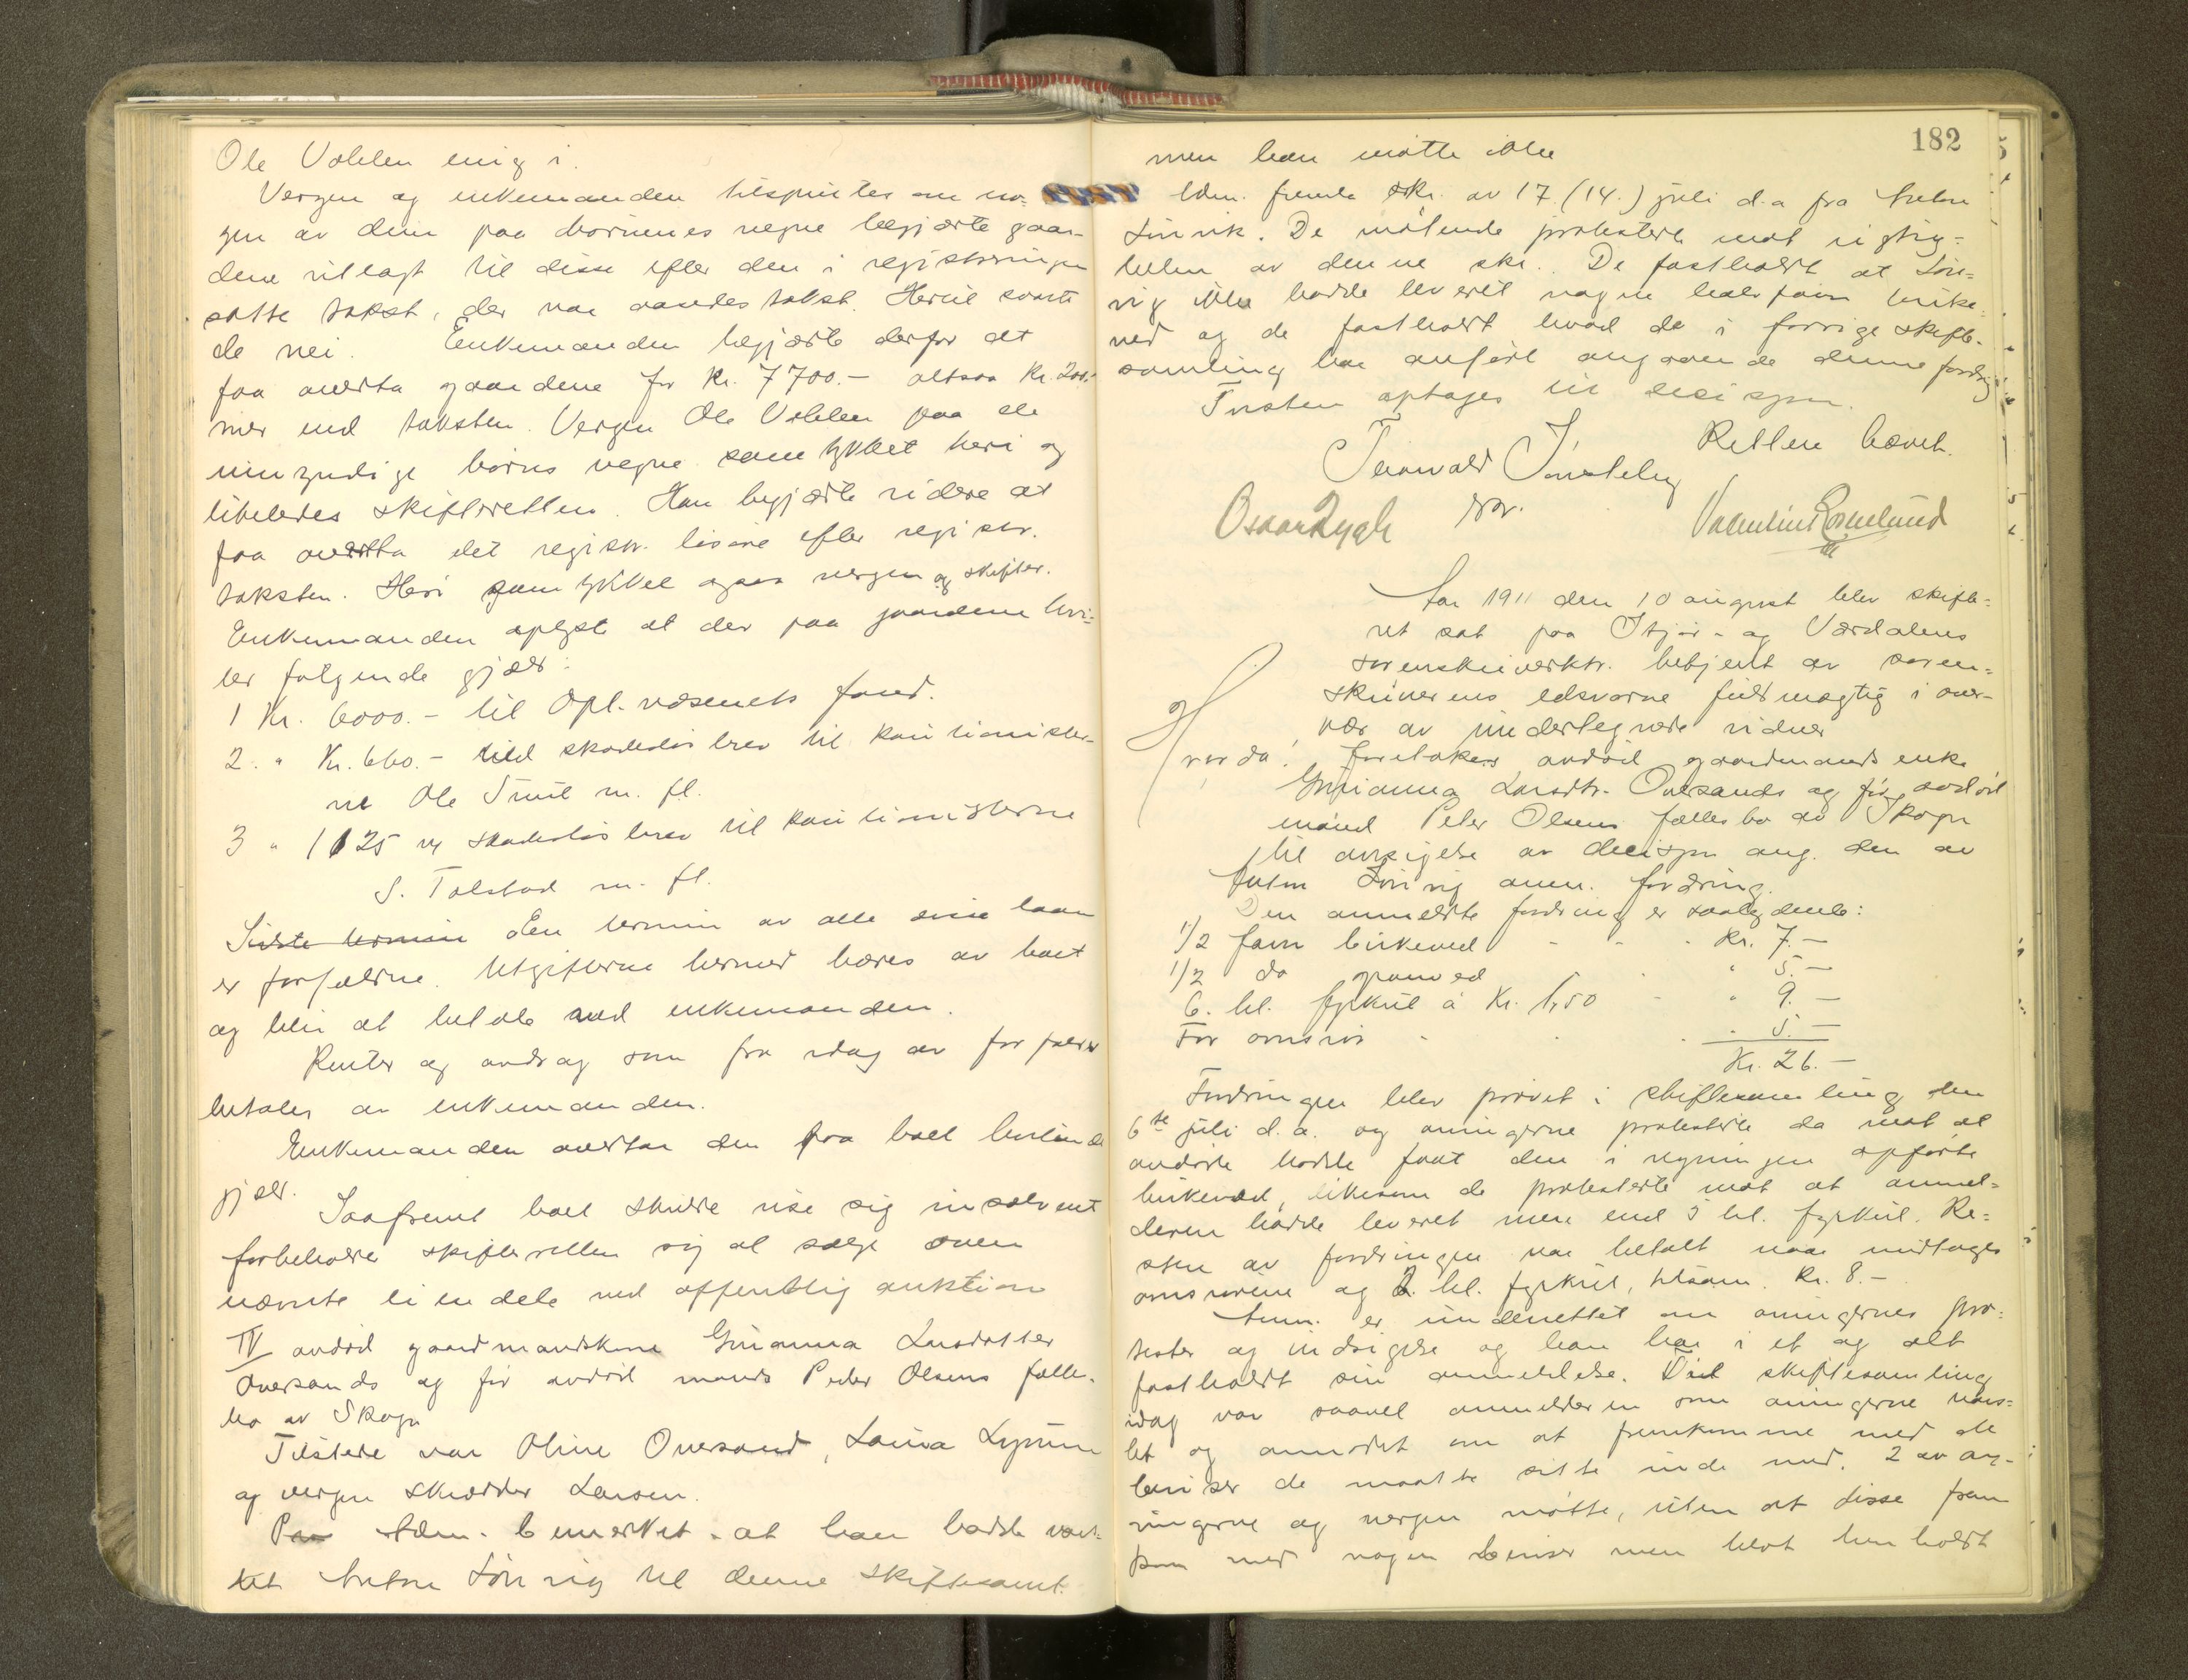 Ole Volden enig i.
Vergen og enkemanden tilspurtes om no-
gen av dem paa børnenes vegne begjærte gaar-
dene utlagt til disse efter den i registreringen
satte takst, der var aasædes takst. Hertil svarte
de nei. Enkemanden begjærte derfor at
faa overta gaardene for kr. 7700.- altsaa kr. 200.-
mer end taksten. Vergen Ole Volden paa de
umyndige børns vegne samtykket heri og
likeledes skifteretten. Han begjærte videre at
faa overta det registr. løsøre efter registr.
taksten. Heri samtykket ogsaa vergen og skifter.
Enkemanden oplyste at der paa gaardene hvi-
ler følgende gjæld:
1 Kr. 6000.- til Opl. væsenets fond.
2. " Kr. 660.- skadesløsbrev til kautionister-
ne Ole m. fl.
3 " 1125 skadesløsbrev til kautionisterne
S. Tolstad m. fl.
Sidste termin Een termin av alle disse laan
er forfaldne. Utgifterne hermed bæres av boet
og blir at betale ved enkemanden.
Renter og avdrag som fra idag av forfalder
betales av enkemanden.
Enkemanden overtar den paa boet heftende
gjæld.
Saafremt boet skulde vise sig insolvent
forbeholder skifteretten sig at sælge oven
nævnte eiendele ved offentlig auktion
IV avdød gaardmandsenke Gurianna Larsdatter
Oversands og før avdød mands Peder Olsens fælles-
bo av Skogn
Tilstede var Oline Oversand, Lovisa
og vergen skrædder Larsen.
Adm. bemerket at han hadde vars-
let Anton Lønvig til denne skiftesaml.
182
men han møtte ikke
Adm. fremla skr. av 17. (14.) juli d.a fra Anton
Lønvik. De møtende protesterte mot rigtig-
heten av denne skr. De fastholdt at Løn-
vig ikke hadde leveret nogen halv favn birke-
ved og de fastholdt hvad de i forrige skifte-
samling har anført angaaende denne fordring
Tvisten optages til decisjon.
Retten hævet.
Torvald
Oscar Rygh ssv. Valentin
Aar 1911 den 10 august blev skifte-
ret sat paa Stjør- og Værdalens
sorenskriverktr. betjent av soren-
skriverens edsvorne fuldmægtig i over-
vær av undertegnede vidner
Hvorda! foretokes avdød gaardmands enke
Gurianna Larsdtr. Oversands og før avdød
mand Peter Olsens fællesbo av Skogn
til avsigelse av decisjon ang. den av
Anton Lønvig anm. fordring.
Den anmeldte fordring er saalydende:
1/2 favn birkeved - - - Kr. 7.-
1/2 do granved " 5.-
6. hl. fyrkul à Kr. 1,50 - " 9.-
For omsvøi - - - " 5.-
Kr. 26.-
Fordringen blev prøvet i skiftesamling den
6te juli d.a. og arvingerne protesterte da mot at
avdøde hadde faat den i regningen opførte
birkeved, likesom de protesterte mot at anmel-
deren hadde leveret mere end 5 hl. fyrkul. Re-
sten av fordringen var betalt naar undtages
og 2 hl. fyrkul, tilsam. Kr. 8.-
Anm. er underrettet om arvingernes pro-
tester og indsigelse og han har i et og alt
fastholdt sin anmeldelse. Til skiftesamling
idag var saavel anmelderen som arvingerne vars-
let og anmodet om at fremkomme med de
beviser de maatte sitte inde med. 2 av arv-
ingerne og vergen møtte, uten at disse frem
kom med nogen beviser men blot henholdt